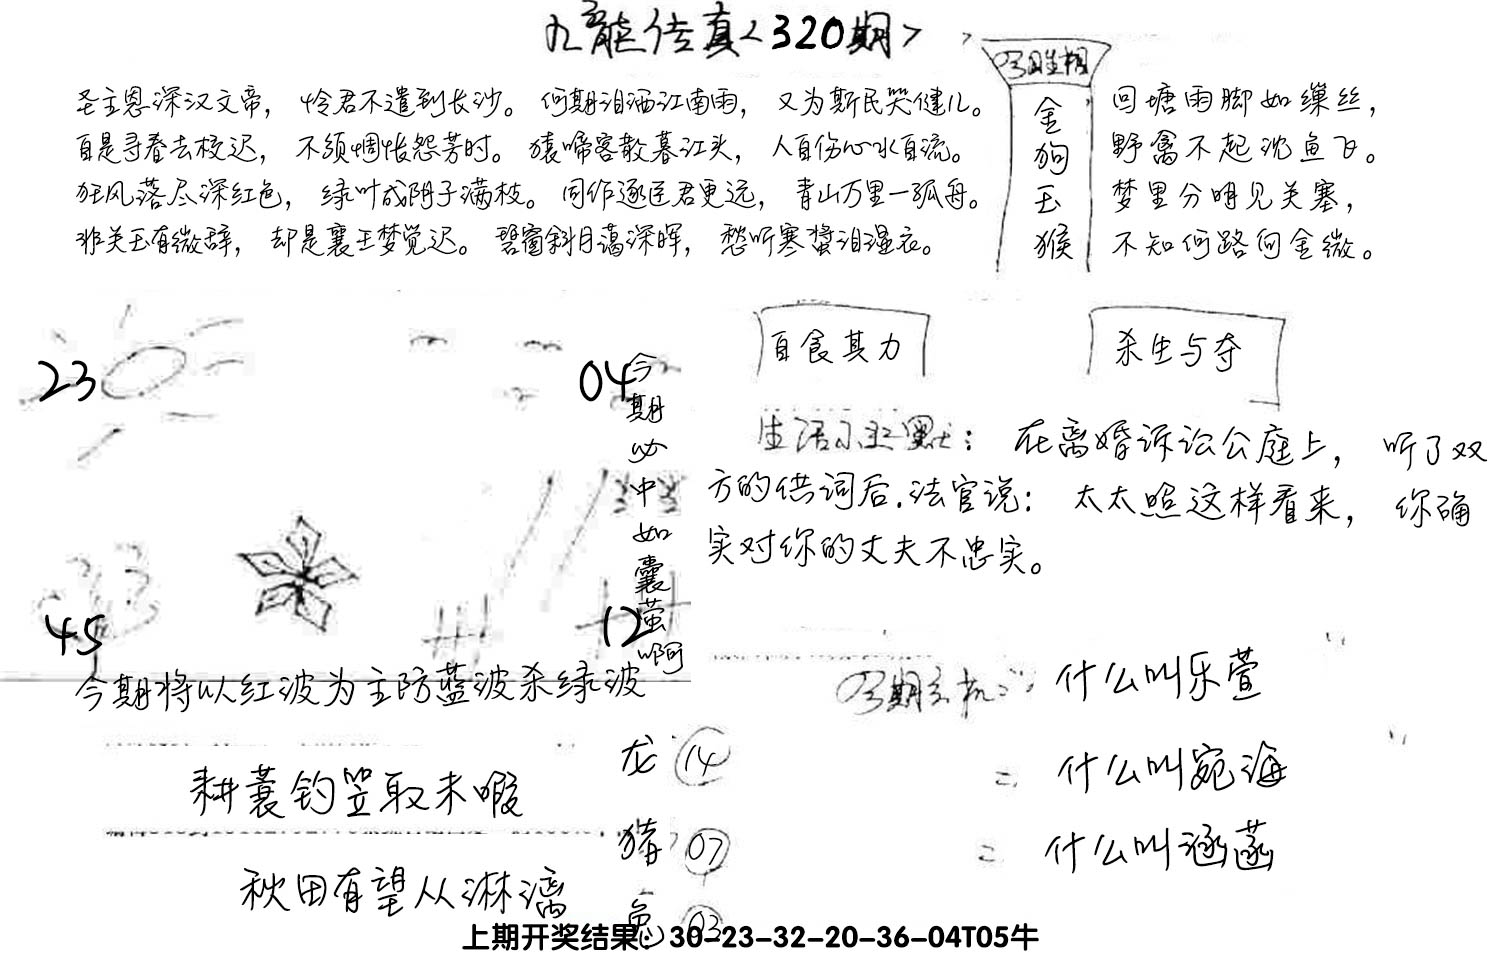 九龍传真<320期>
圣主恩深汉文帝，怜君不遣到长沙。何期泪洒江南雨，又为斯民哭健儿。
自是寻春去校迟，不须惆怅怨芳时。猿啼客散暮江头，人自伤心水自流。
狂风落尽深红色，绿叶成阴子满枝。同作逐臣君更远，青山万里一孤舟。
非关玉有微辞，却是襄王梦觉迟。碧窗斜日蔼深晖，愁听寒螀泪湿衣。
金
狗
玉
猴
回塘雨脚如缫丝，
野禽不起沈鱼飞。
梦里分明见关塞，
不知何路向金微。
23
04
45
12
今期必中如囊萤啊
今期将以红波为主防蓝波杀绿波
自食其力
杀生与夺
生活小幽默：在离婚诉讼公庭上，听了双
方的供词后.法官说：太太照这样看来，你确
实对你的丈夫不忠实。
耕蓑钓笠取未暇
秋田有望从淋漓
龙 14
猪 07
兔 03
今期玄机：什么叫乐萱
= 什么叫宛海
= 什么叫涵菡
上期开奖结果：30-23-32-20-36-04T05牛